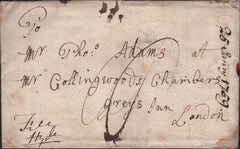 To
Mr Tho.s Adams at
Mr Collingwoods Chambers
Greys Inn
London
Free
Hyde